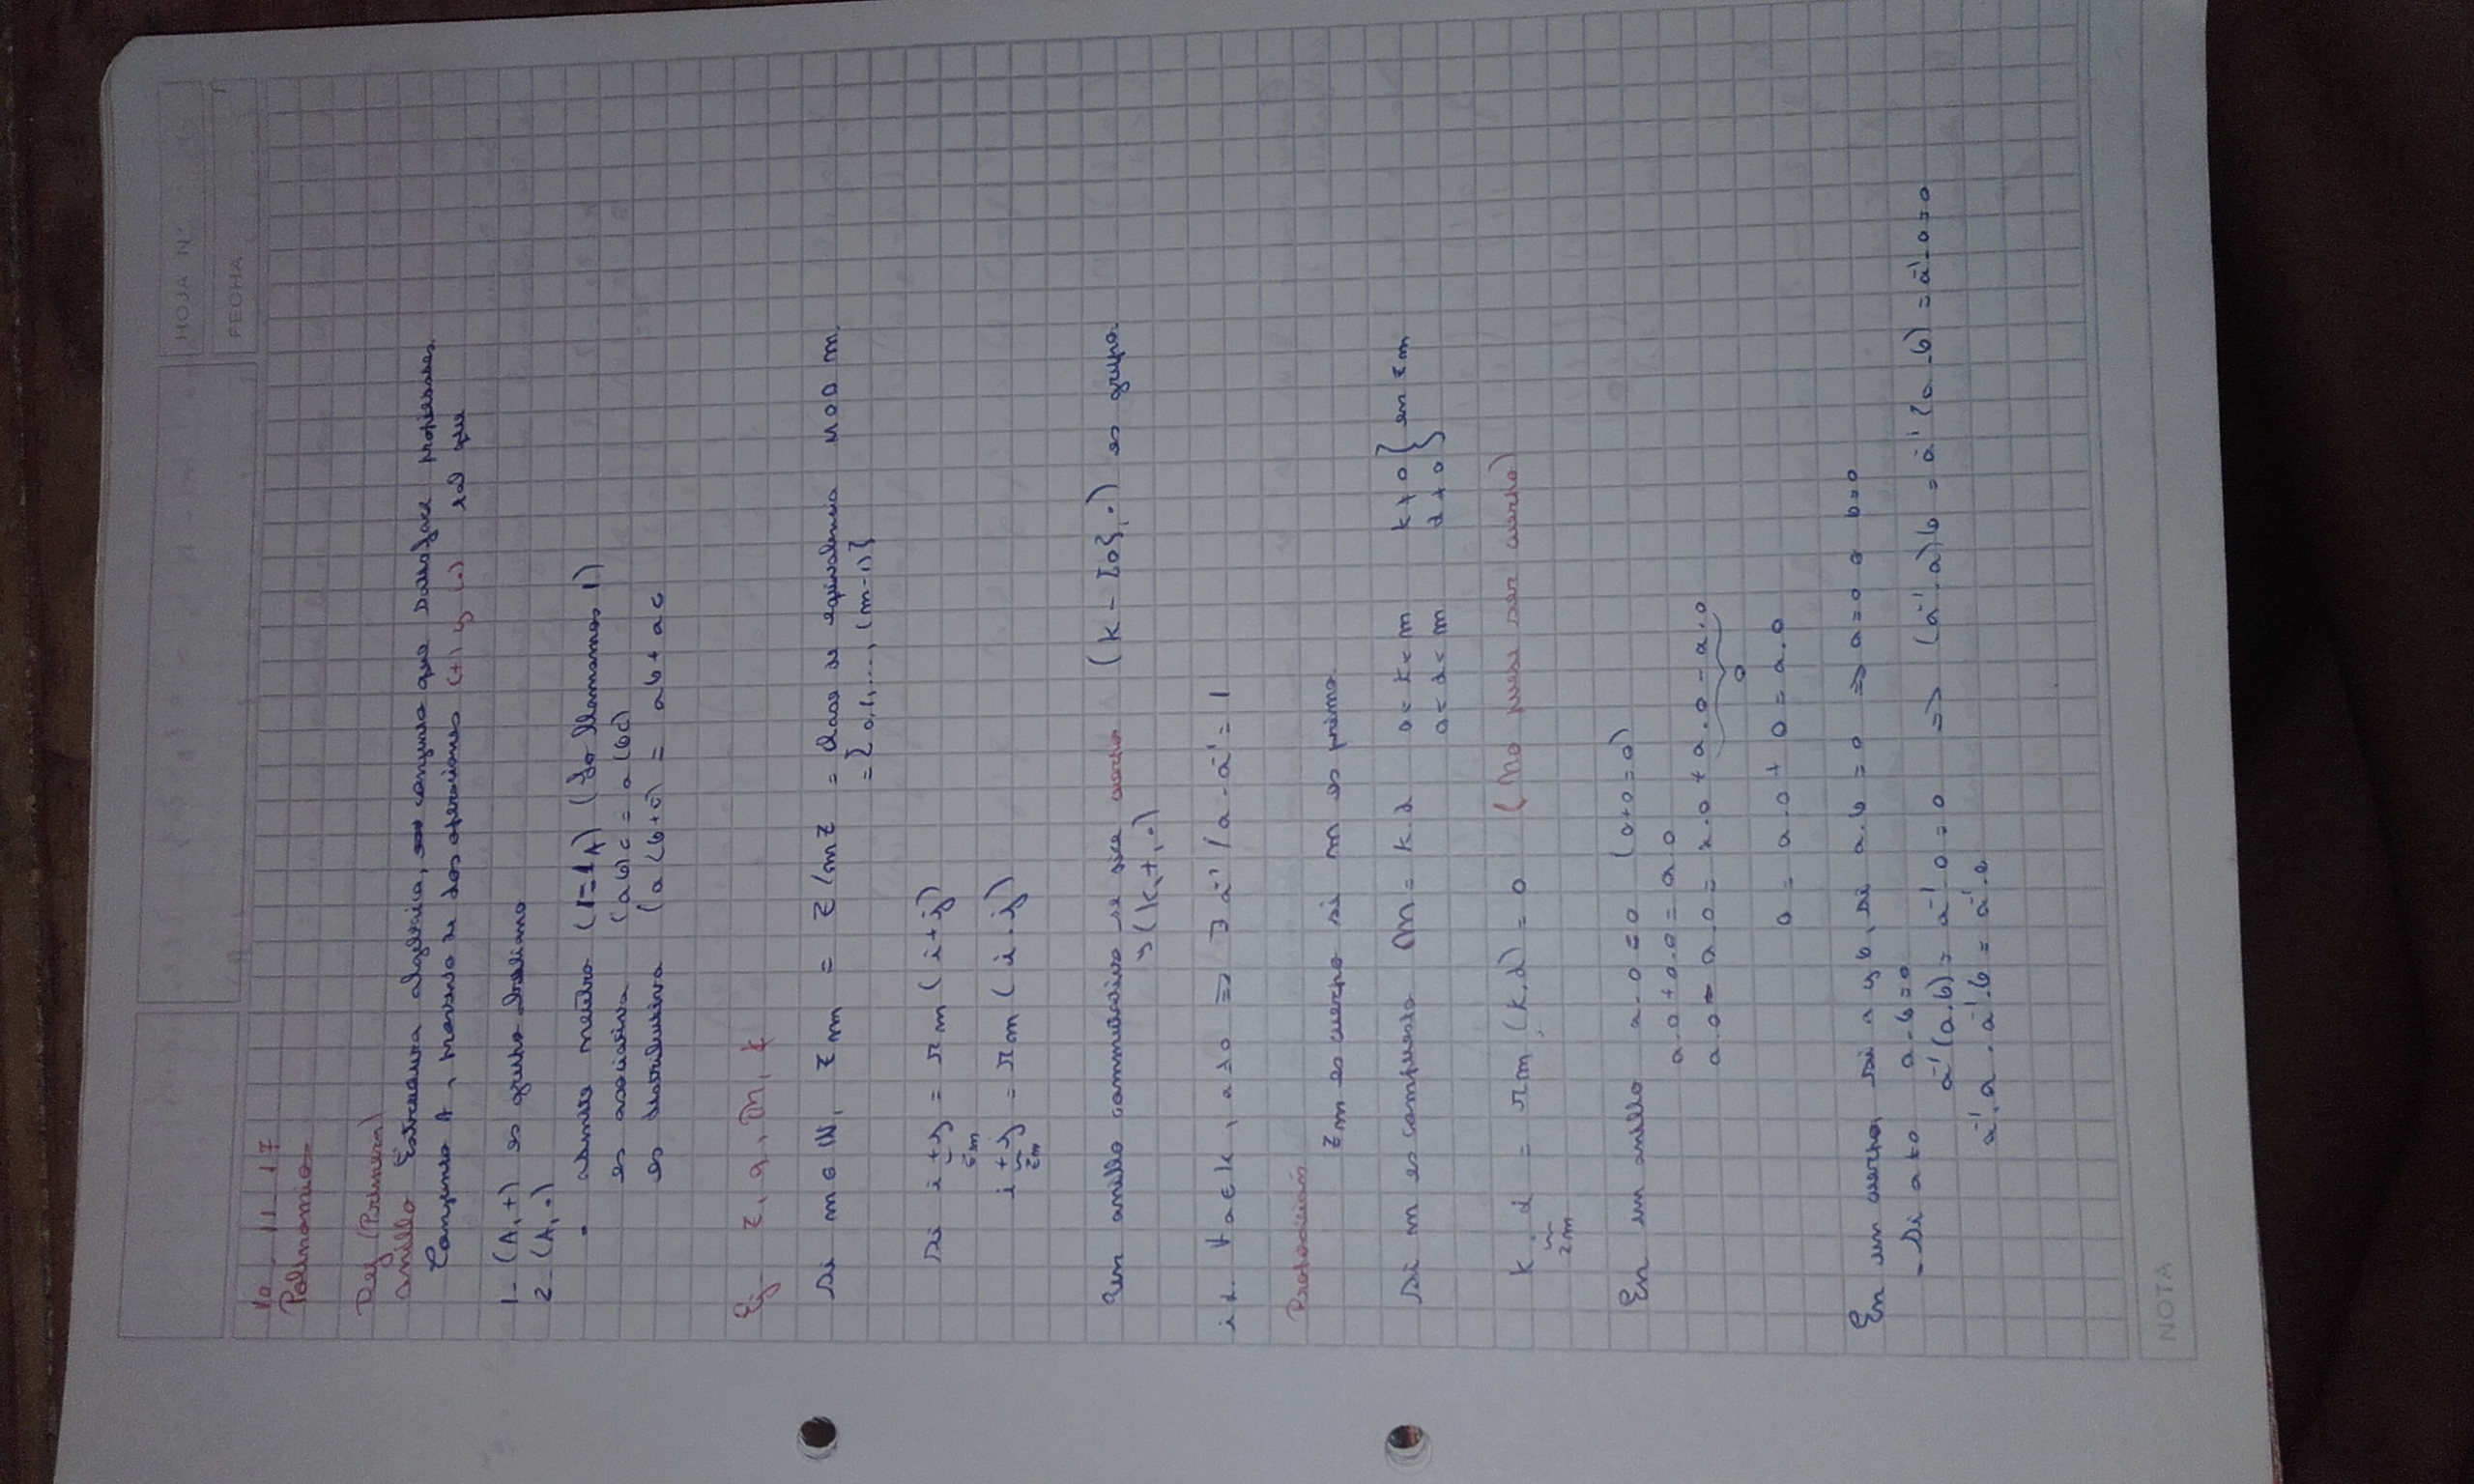 HOJA N°
FECHA
10 - 11 - 17
Polinomios
Def (Primera)
anillo Estructura algebraica, conjunto que satisface propiedades
Conjunto A, provisto de dos operaciones (+) y (.) tal que
1- (A, +) es grupo abeliano
2- (A, .)
• admite neutro (1=1_A) (Lo llamamos 1)
es asociativa (ab)c = a(bc)
es distributiva (a(b+c) = ab + ac
Ej- Z, Q, R, C
Si m ∈ N, Zm = Z/mZ = clase de equivalencia MOD m.
= {0,1,..., (m-1)}
Si i + j = rm (i+j)
Zm
i + j = rm (i . j)
Zm
Un anillo conmutativo se dice cuerpo (K - {0}, .) es grupo.
y (K, +, .)
i.e. ∀ a ∈ K, a ≠ 0 ⇒ ∃ a⁻¹ / a . a⁻¹ = 1
Proposición
Zm es cuerpo si m es primo.
Si m es compuesto m = k.d 0 < k < m k ≠ 0 } en Zm
0 < d < m d ≠ 0 }
k . d = rm (k.d) = 0 (No puede ser cuerpo)
Zm
En un anillo a . 0 = 0 (0+0=0)
a.0 + a.0 = a.0
a.0 - a.0 = a.0 + a.0 - a.0
0
0 = a.0 + 0 = a.0
En un cuerpo, si a y b, si a.b = 0 ⇒ a=0 o b=0
- Si a ≠ 0 a.b=0
a⁻¹(a.b) = a⁻¹.0 = 0 ⇒ (a⁻¹.a)b = a⁻¹(a.b) = a⁻¹.0=0
a⁻¹.a . a⁻¹.b = a⁻¹.0
NOTA